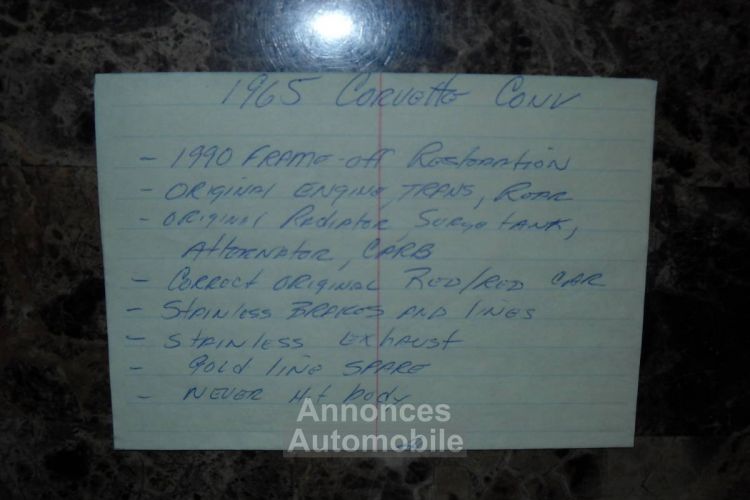 1965 Corvette Conv
- 1990 Frame-off Restoration
- Original Engine, Trans, Rear
- Original Radiator, Surge tank,
Alternator, Carb
- Correct original Red/Red car
- Stainless Brakes and lines
- Stainless Exhaust
- Gold line spare
- Never Hit body
Annonces
Automobile